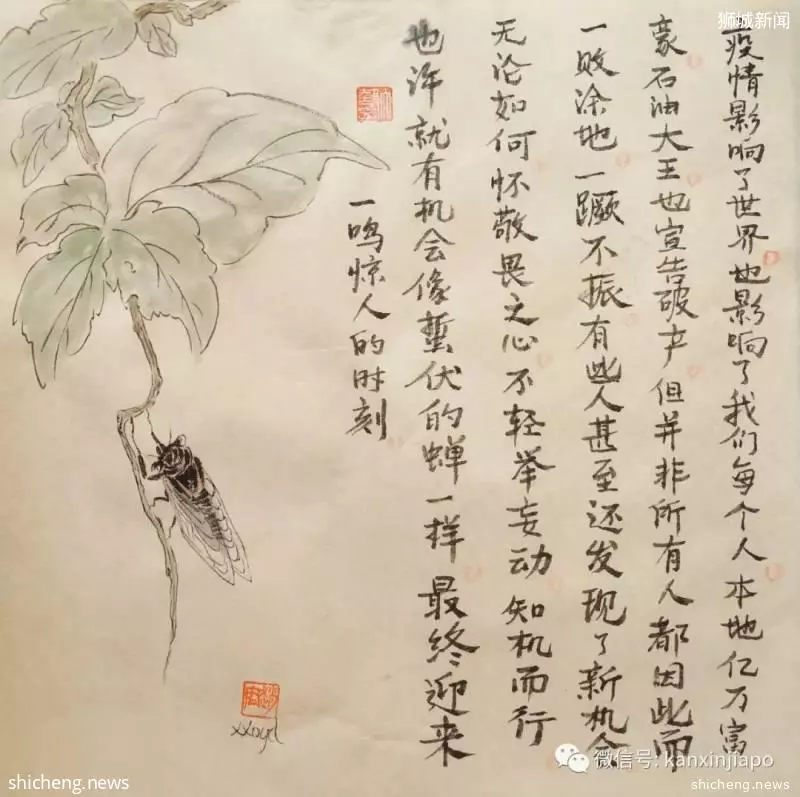 狮城新闻
疫情影响了世界也影响了我们每个人本地亿万富
豪石油大王也宣告破产但并非所有人都因此而
一败涂地一蹶不振有些人甚至还发现了新机会
无论如何怀敬畏之心不轻举妄动知机而行
也许就有机会像蛰伏的蝉一样最终迎来
一鸣惊人的时刻
微信号: kanxinjiapo
shicheng.news
shicheng.news